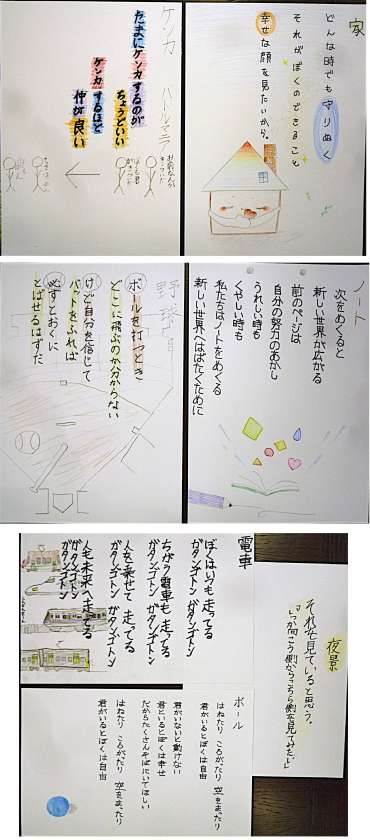 家
どんな時でも守りぬく
それがぼくのできること
幸せな顔を見たいから。
ケンカ
たまにケンカするのが
ちょうどいい
ケンカするほど
仲が良い
ノート
次をめくると
新しい世界が広がる
前のページは
自分の努力のあかし
うれしい時も
くやしい時も
私たちはノートをめくる
新しい世界へはばたくために
野球
ボールを打つとき
どこに飛ぶのか分からない
けど自分を信じて
バットをふれば
必ずとおくに
とばせるはずだ
夜景
それを見ていると思う。
「いつか向こう側からこちら側を見てみたい」
電車
ぼくはいつも走ってる
ガタンゴトン ガタンゴトン
ちがう電車も走ってる
ガタンゴトン ガタンゴトン
人を乗せて走ってる
ガタンゴトン ガタンゴトン
人も未来へ走ってる
ガタンゴトン ガタンゴトン
ボール
はねたり ころがったり 空をまったり
君がいるとぼくは自由
君がいないと動けない
君といるとぼくは幸せ
だからたくさんそばにいてほしい
はねたり ころがったり 空をまったり
君がいるとぼくは自由